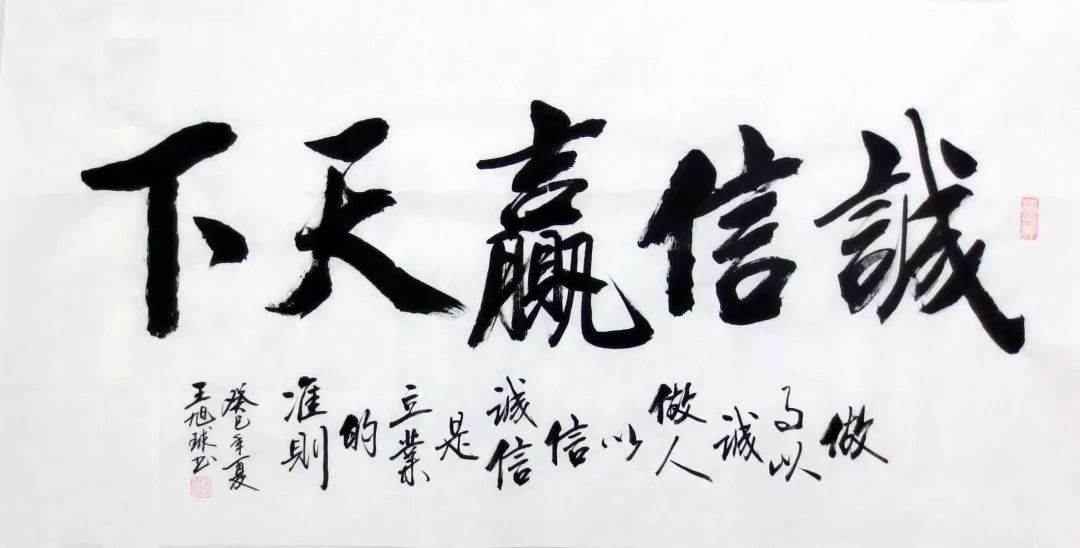 誠信贏天下
做
事以
誠
做人
以
信
誠信
是
立業
的
准則
癸巳年夏
王旭球书